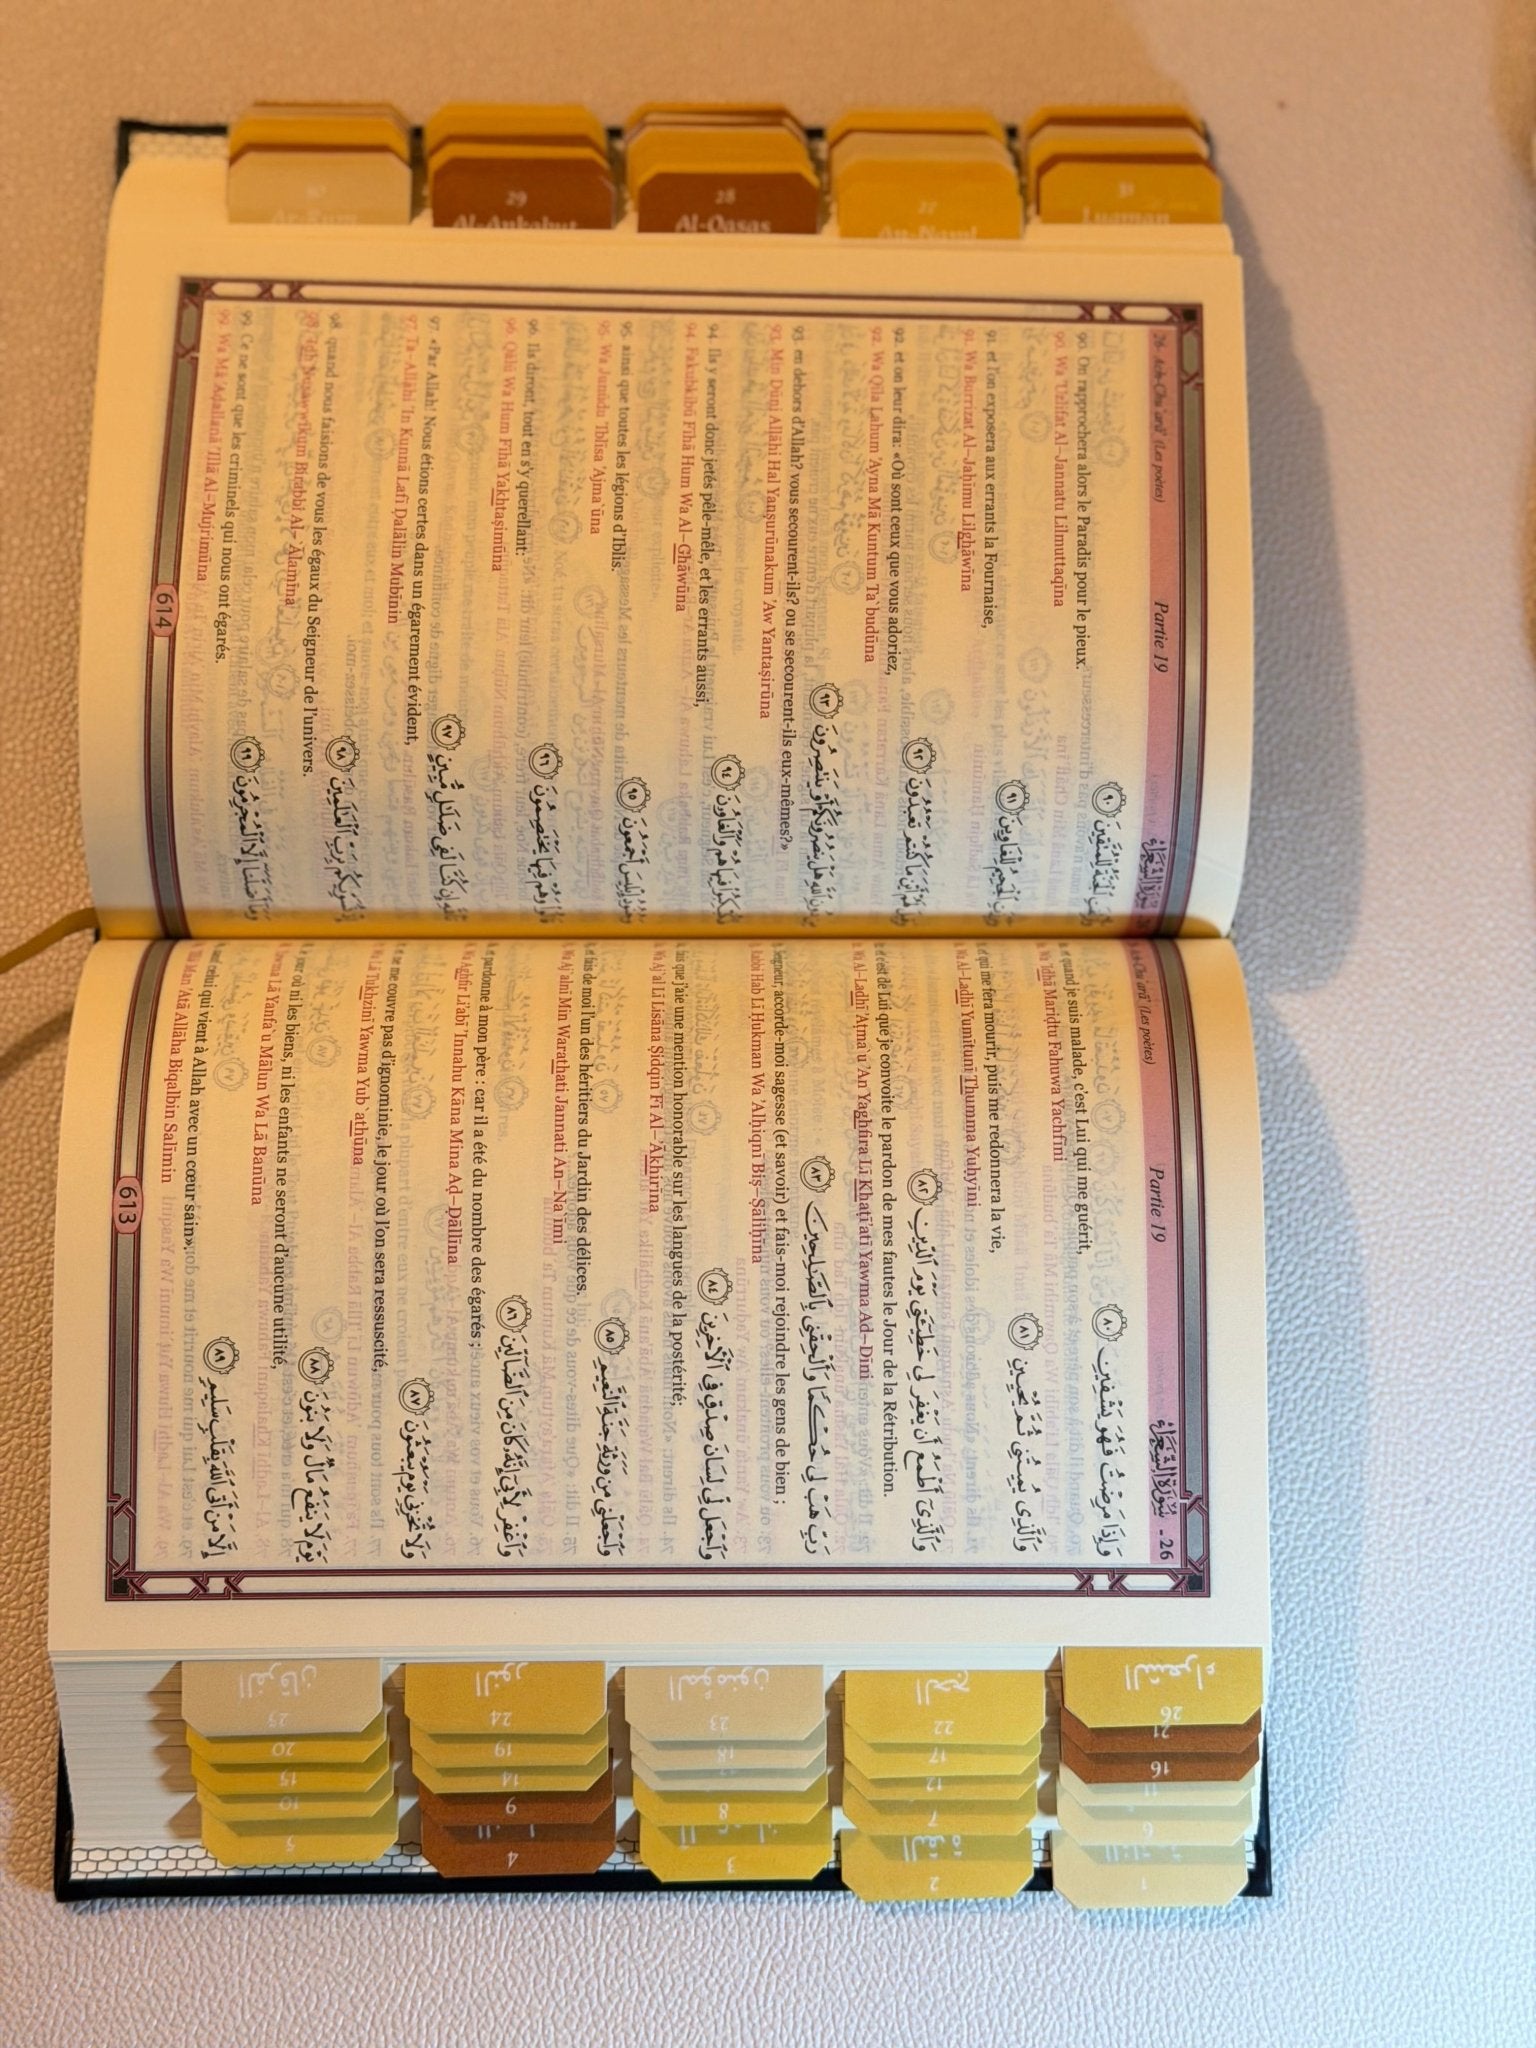 Ach-Chu'arā' (Les poètes) Partie 19 سُورَةُ الشُّعَرَاء - 26
وَإِذَا مَرِضْتُ فَهُوَ يَشْفِينِ ﴿٨٠﴾
et quand je suis malade, c'est Lui qui me guérit,
Wa 'Idhā Mariḍtu Fahuwa Yachfīni
وَٱلَّذِى يُمِيتُنِى ثُمَّ يُحْيِينِ ﴿٨١﴾
et qui me fera mourir, puis me redonnera la vie,
Wa Al-Ladhī Yumītunī Thumma Yuḥyīni
وَٱلَّذِىٓ أَطْمَعُ أَن يَغْفِرَ لِى خَطِيٓـَٔتِى يَوْمَ ٱلدِّينِ ﴿٨٢﴾
et c'est de Lui que je convoite le pardon de mes fautes le Jour de la Rétribution.
Wa Al-Ladhī 'Aṭma`u 'An Yaghfira Lī Khaṭī'atī Yawma Ad-Dīni
رَبِّ هَبْ لِى حُكْمًا وَأَلْحِقْنِى بِٱلصَّـٰلِحِينَ ﴿٨٣﴾
Seigneur, accorde-moi sagesse (et savoir) et fais-moi rejoindre les gens de bien ;
Rabbi Hab Lī Ḥukman Wa 'Alḥiqnī Biṣ-Ṣāliḥīna
وَٱجْعَل لِّى لِسَانَ صِدْقٍ فِى ٱلْـَٔاخِرِينَ ﴿٨٤﴾
fais que j'aie une mention honorable sur les langues de la postérité;
Wa Aj`al Lī Lisāna Ṣidqin Fī Al-'Ākhirīna
وَٱجْعَلْنِى مِن وَرَثَةِ جَنَّةِ ٱلنَّعِيمِ ﴿٨٥﴾
et fais de moi l'un des héritiers du Jardin des délices.
Wa Aj`alnī Min Warathati Jannati An-Na`īmi
وَٱغْفِرْ لِأَبِىٓ إِنَّهُۥ كَانَ مِنَ ٱلضَّآلِّينَ ﴿٨٦﴾
et pardonne à mon père : car il a été du nombre des égarés ;
Wa Aghfir Li'abī 'Innahu Kāna Mina Aḍ-Ḍāllīna
وَلَا تُخْزِنِى يَوْمَ يُبْعَثُونَ ﴿٨٧﴾
et ne me couvre pas d'ignominie, le jour où l'on sera ressuscité,
Wa Lā Tukhzinī Yawma Yub`athūna
يَوْمَ لَا يَنفَعُ مَالٌ وَلَا بَنُونَ ﴿٨٨﴾
le jour où ni les biens, ni les enfants ne seront d'aucune utilité,
Yawma Lā Yanfa`u Mālun Wa Lā Banūna
إِلَّا مَنْ أَتَى ٱللَّهَ بِقَلْبٍ سَلِيمٍ ﴿٨٩﴾
sauf celui qui vient à Allah avec un cœur sain».
'Illā Man 'Atá Allāha Biqalbin Salīmin
613
26- Ach-Chu'arā' (Les poètes) Partie 19 سُورَةُ الشُّعَرَاء
وَأُزْلِفَتِ ٱلْجَنَّةُ لِلْمُتَّقِينَ ﴿٩٠﴾
90. On rapprochera alors le Paradis pour le pieux.
90. Wa 'Uzlifat Al-Jannatu Lilmuttaqīna
وَبُرِّزَتِ ٱلْجَحِيمُ لِلْغَاوِينَ ﴿٩١﴾
91 et l'on exposera aux errants la Fournaise,
91. Wa Burrizat Al-Jaḥīmu Lilghāwīna
وَقِيلَ لَهُمْ أَيْنَ مَا كُنتُمْ تَعْبُدُونَ ﴿٩٢﴾
92. et on leur dira: «Où sont ceux que vous adoriez,
92. Wa Qīla Lahum 'Ayna Mā Kuntum Ta`budūna
مِن دُونِ ٱللَّهِ هَلْ يَنصُرُونَكُمْ أَوْ يَنتَصِرُونَ ﴿٩٣﴾
93. en dehors d'Allah? vous secourent-ils? ou se secourent-ils eux-mêmes?»
93. Min Dūni Allāhi Hal Yanṣurūnakum 'Aw Yantaṣirūna
فَكُبْكِبُوا۟ فِيهَا هُمْ وَٱلْغَاوُۥنَ ﴿٩٤﴾
94. Ils y seront donc jetés pêle-mêle, et les errants aussi,
94. Fakubkibū Fīhā Hum Wa Al-Ghāwūna
وَجُنُودُ إِبْلِيسَ أَجْمَعُونَ ﴿٩٥﴾
95. ainsi que toutes les légions d'Iblis.
95. Wa Junūdu 'Iblīsa 'Ajma`ūna
قَالُوا۟ وَهُمْ فِيهَا يَخْتَصِمُونَ ﴿٩٦﴾
96. Ils diront, tout en s'y querellant:
96. Qālū Wa Hum Fīhā Yakhtaṣimūna
تَٱللَّهِ إِن كُنَّا لَفِى ضَلَـٰلٍ مُّبِينٍ ﴿٩٧﴾
97. «Par Allah! Nous étions certes dans un égarement évident,
97. Ta-Allāhi 'In Kunnā Lafī Ḍalālin Mubīnin
إِذْ نُسَوِّيكُم بِرَبِّ ٱلْعَـٰلَمِينَ ﴿٩٨﴾
98. quand nous faisions de vous les égaux du Seigneur de l'univers.
98. 'Idh Nusawwīkum Birabbi Al-`Ālamīna
وَمَآ أَضَلَّنَآ إِلَّا ٱلْمُجْرِمُونَ ﴿٩٩﴾
99. Ce ne sont que les criminels qui nous ont égarés.
99. Wa Mā 'Aḍallanā 'Illā Al-Mujrimūna
614
31
Luqman
27
An-Naml
28
Al-Qasas
29
Al-Ankabut
30
Ar-Rum
الشعراء
26
21
16
11
6
1
الحج
22
17
12
7
2
المؤمنون
23
18
8
3
النور
24
19
14
9
4
الفرقان
25
20
15
10
5